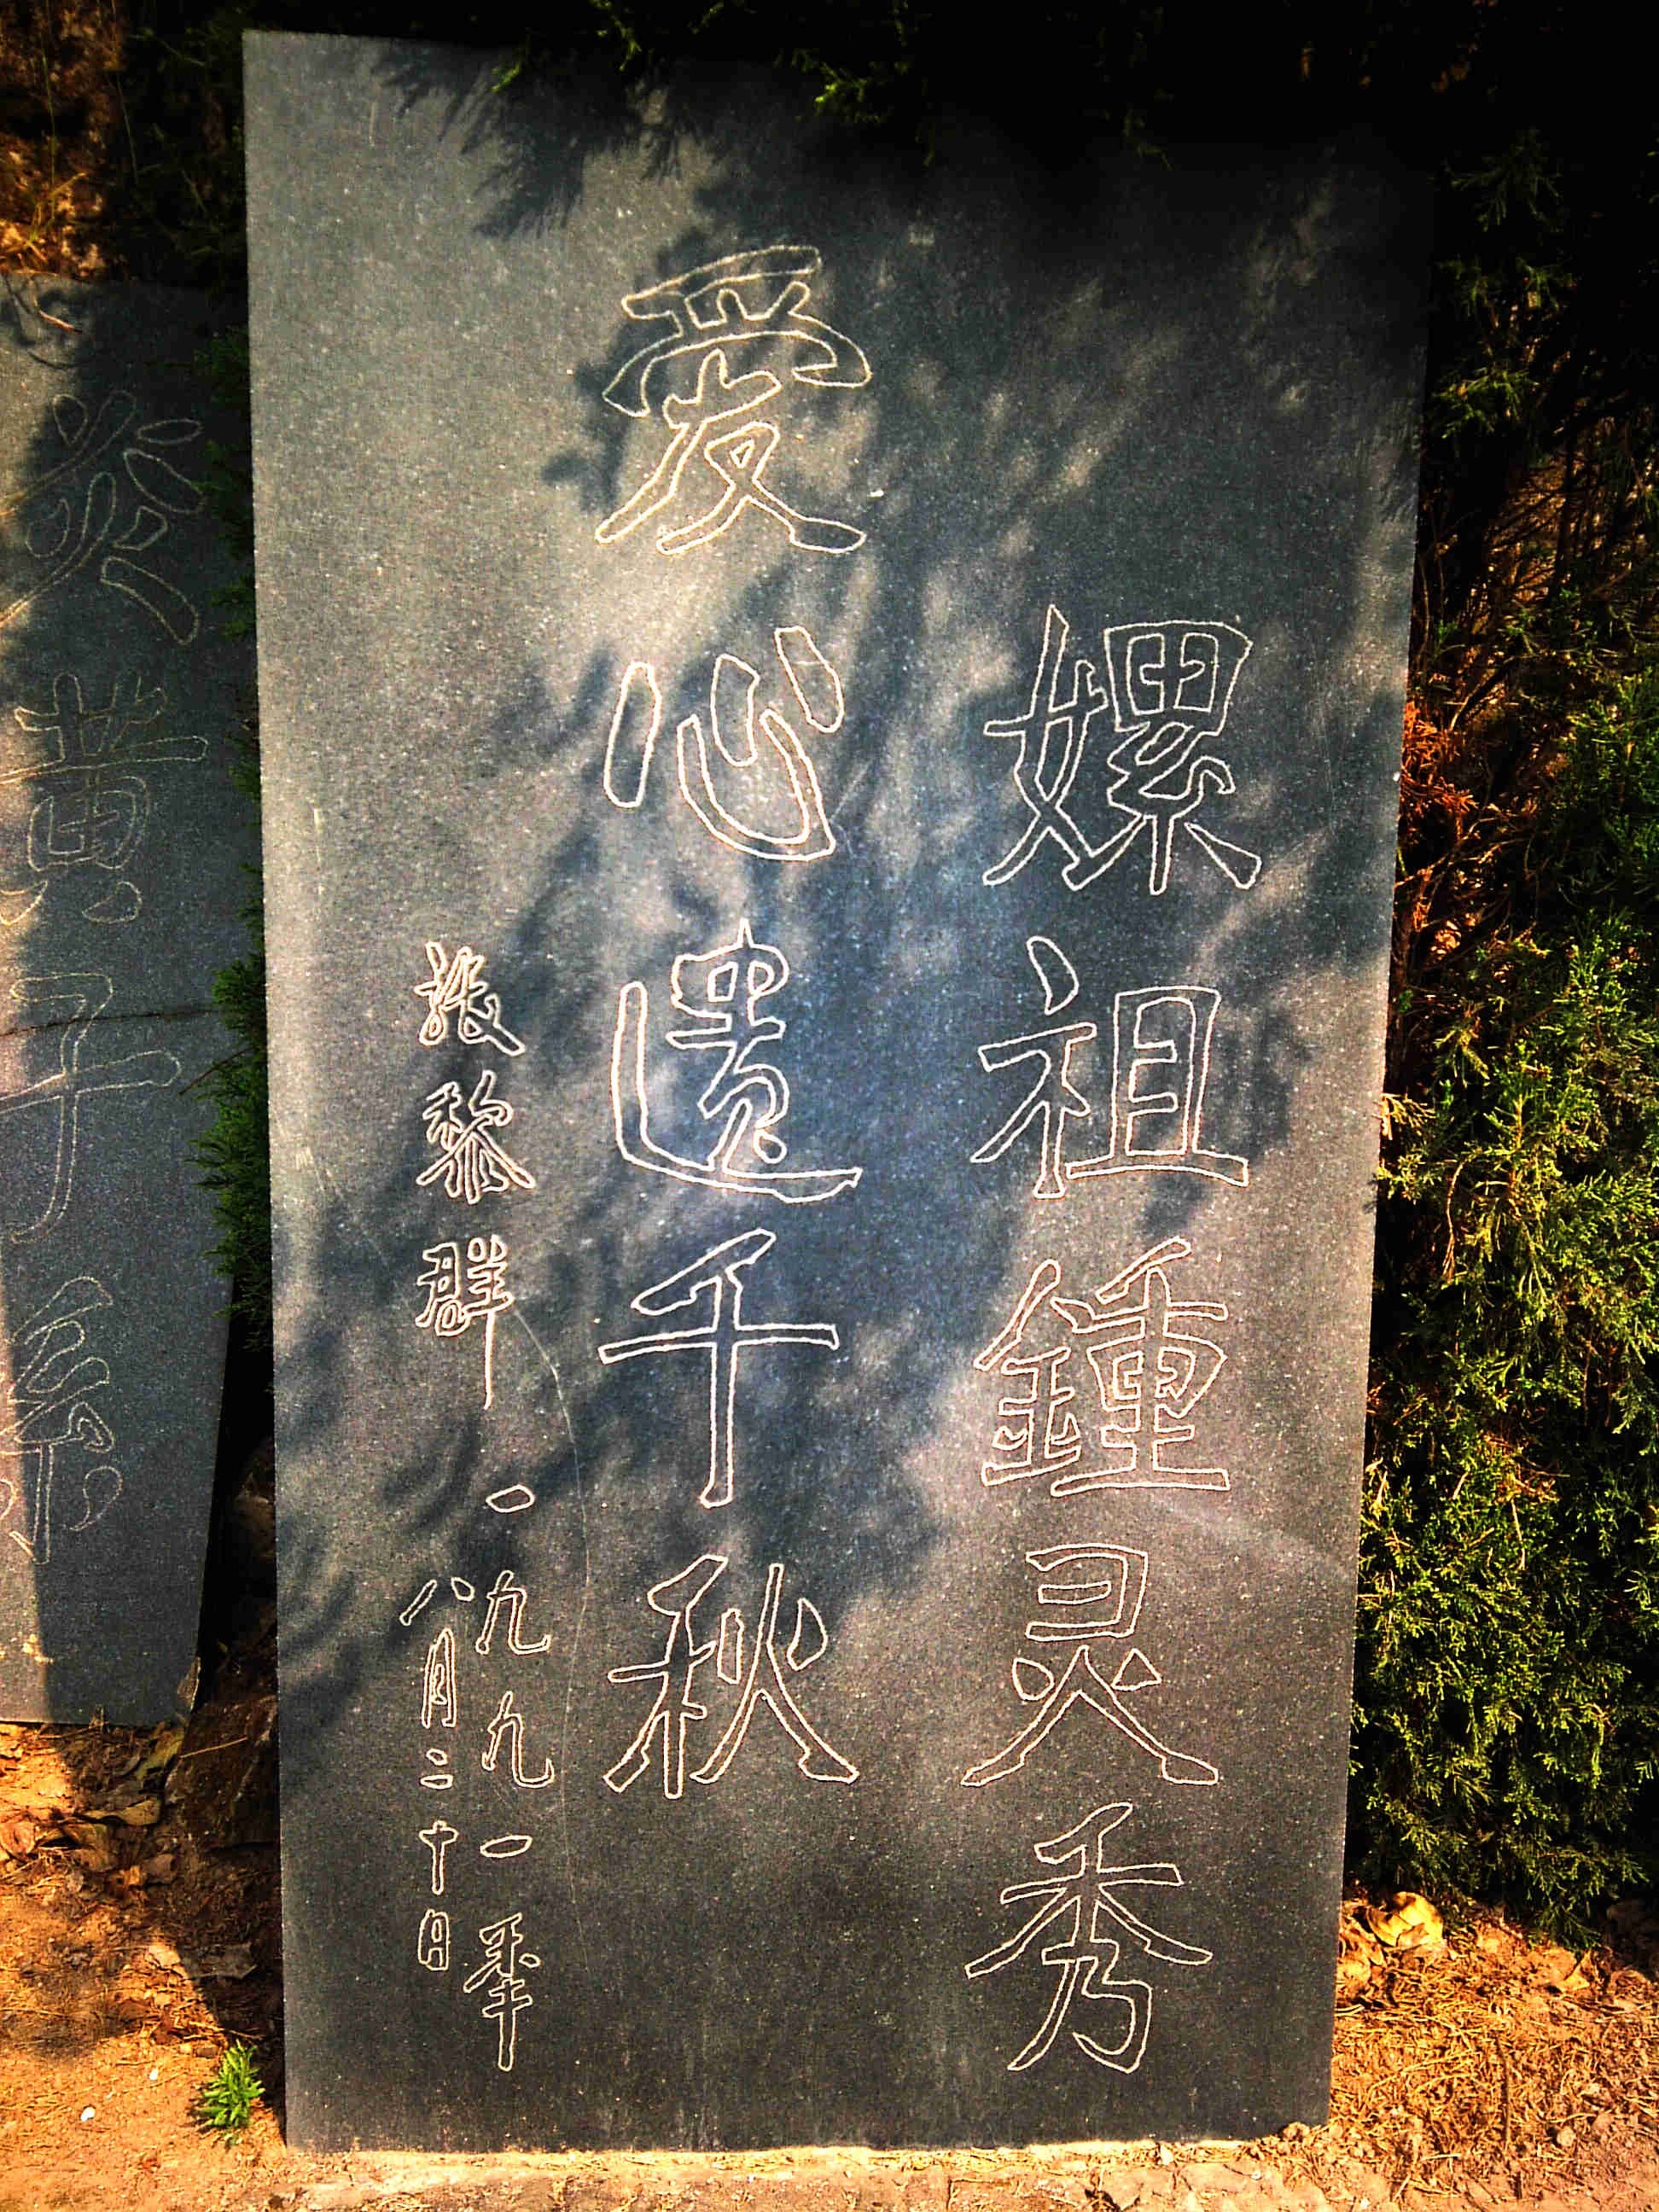 嫘祖鍾灵秀
爱心遗千秋
张黎群
一九九一年
八月二十日
炎黄子孙